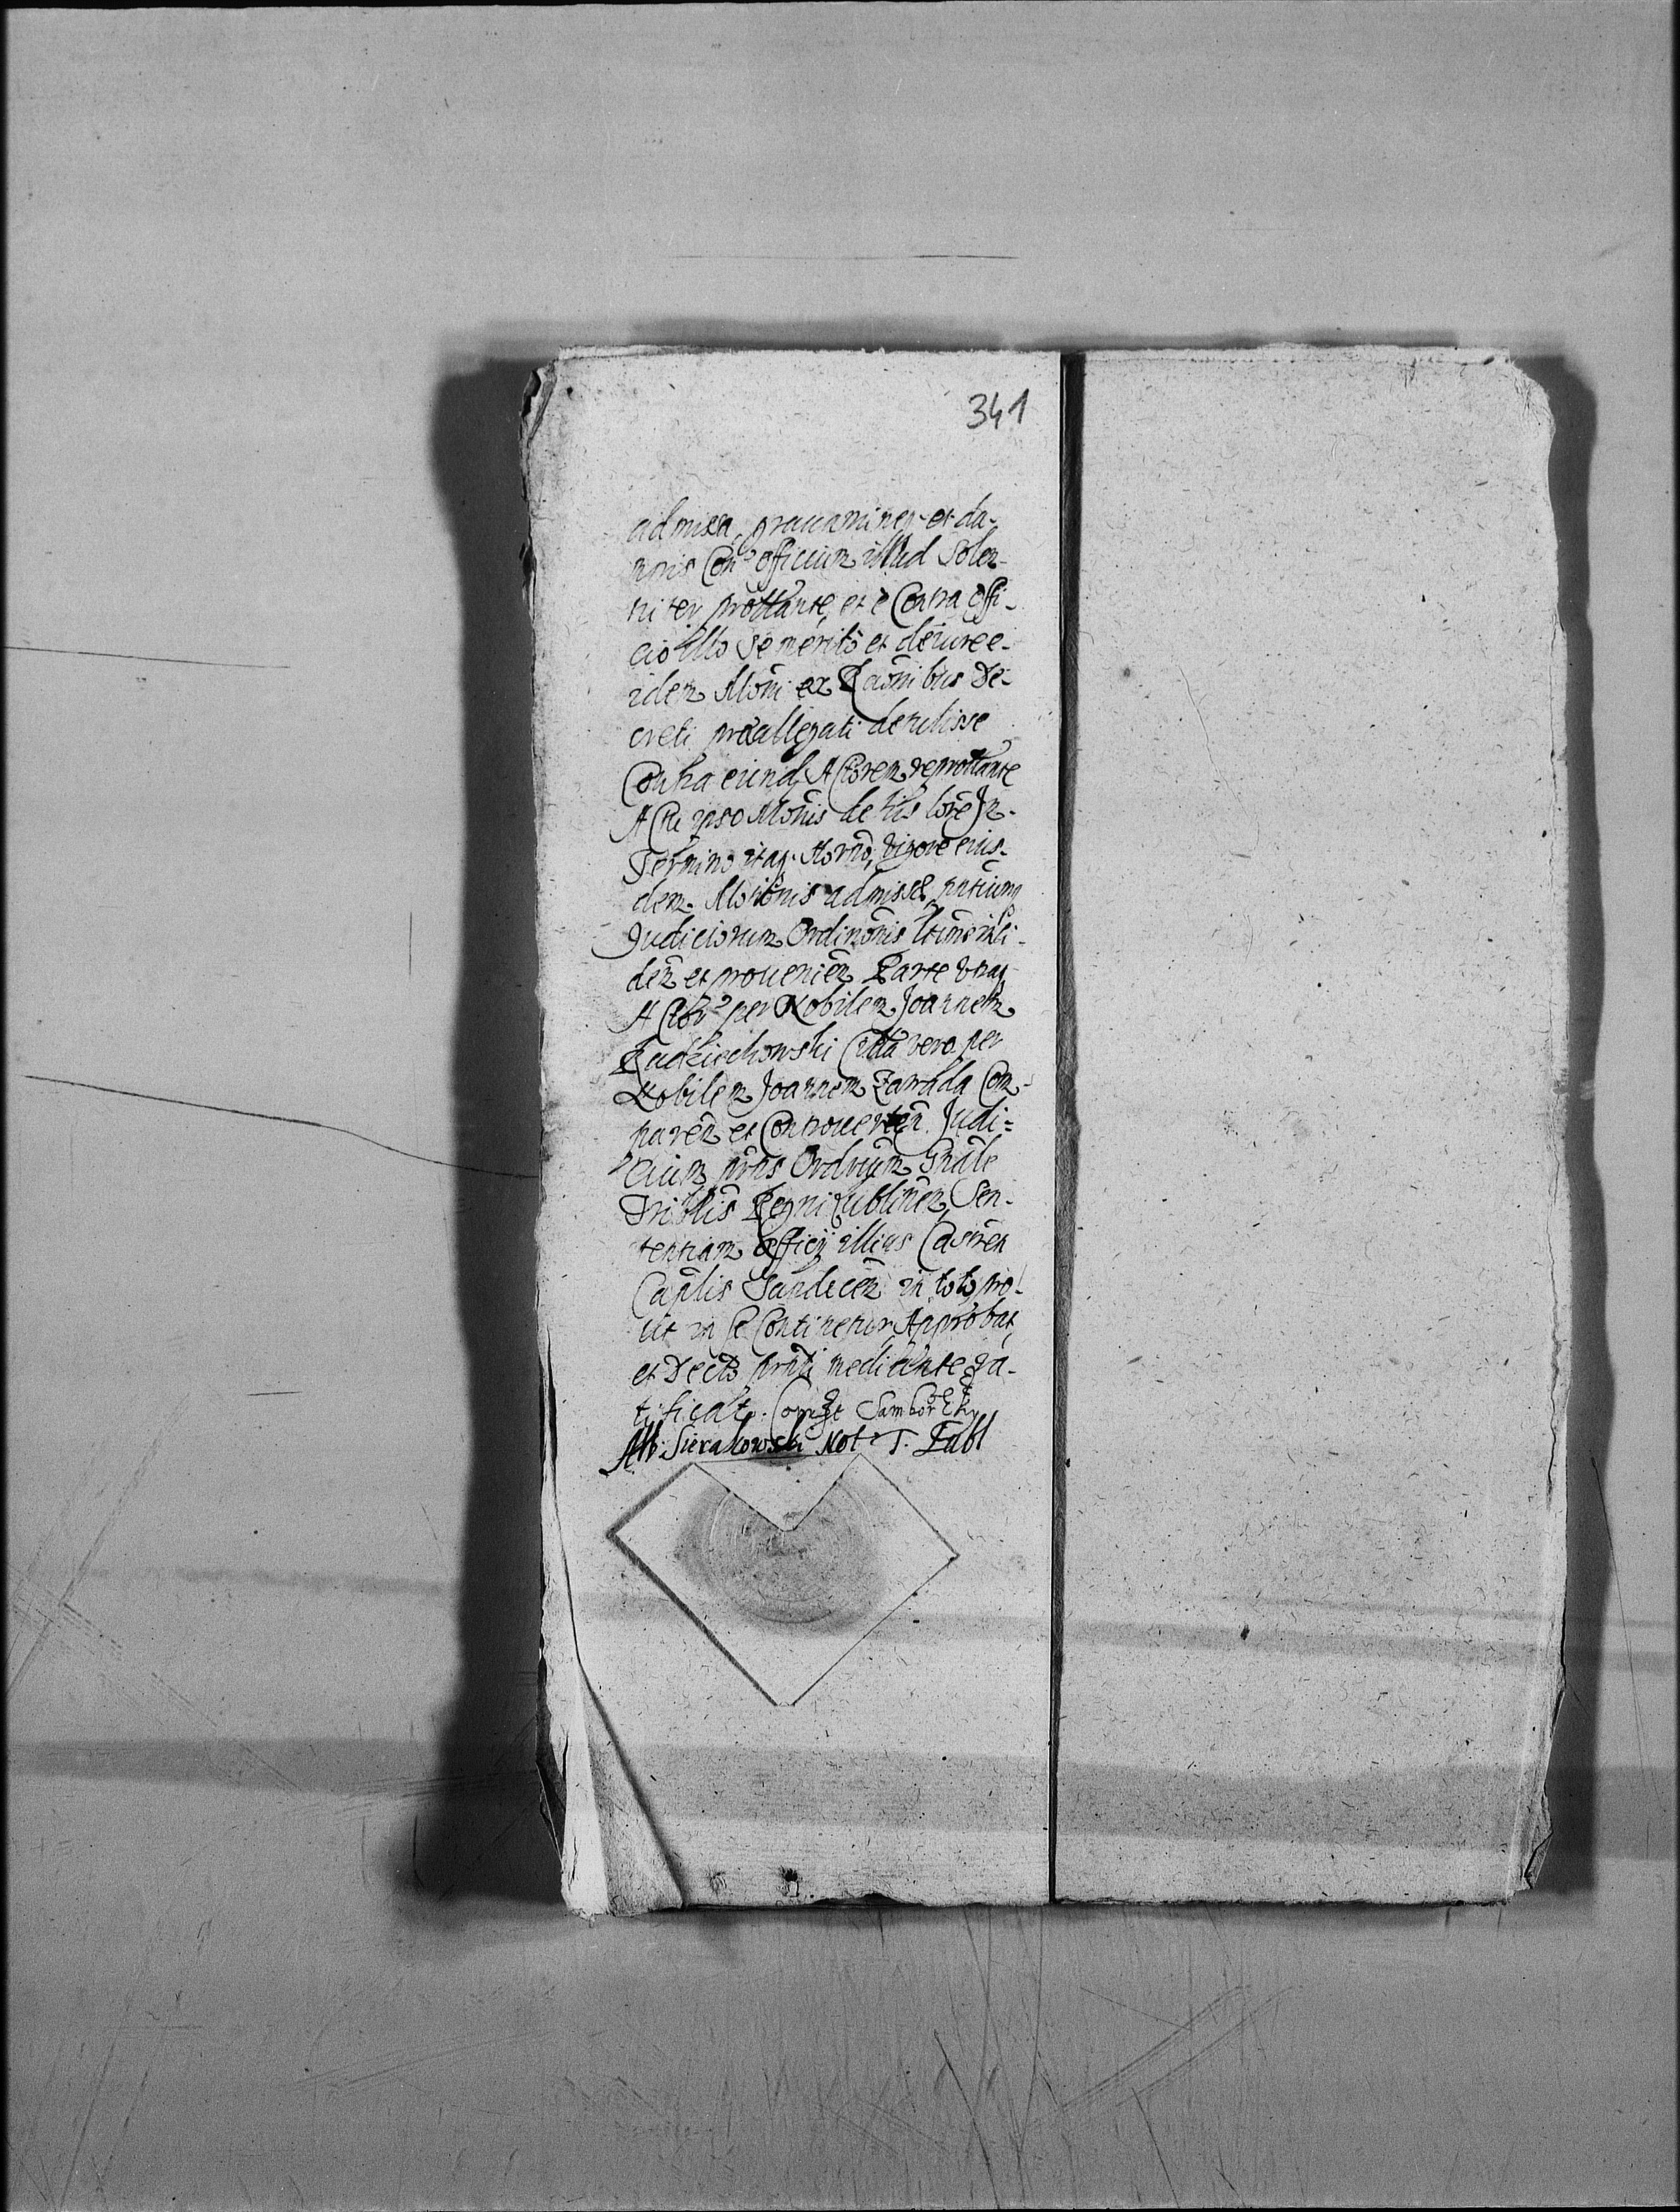 341
admissa, grauamineq et da-
mnis Con officium illud Solen-
niter prottante, et e Contra offi-
cio illo se merito et de iure e-
idem Moni ex Raonibus De-
creti præallegati detulisse
Contra eundq Actorem reprottante
Actu ipso Monis de his lore In
Termino itaq. Horno, vigore eius-
dem Motionis admissæ,
Judiciorum Ordinonis
den et prouenien Parte vtraq
Actor per Nobilem Joannem
Radziechowski Citta vero per
Nobilem Joannem Zawada Com-
paren et Controuerten. Judi=
cium prns Ordrium Gnale
Triblis Regni Lublinen Sen-
tentiam officij illius Castren
Caplis Sandecen in toto pro-
ut in se Continetur, Approbat,
et Decto prnti mediante ra-
tificat.
Alb: Sierakowski Not T.